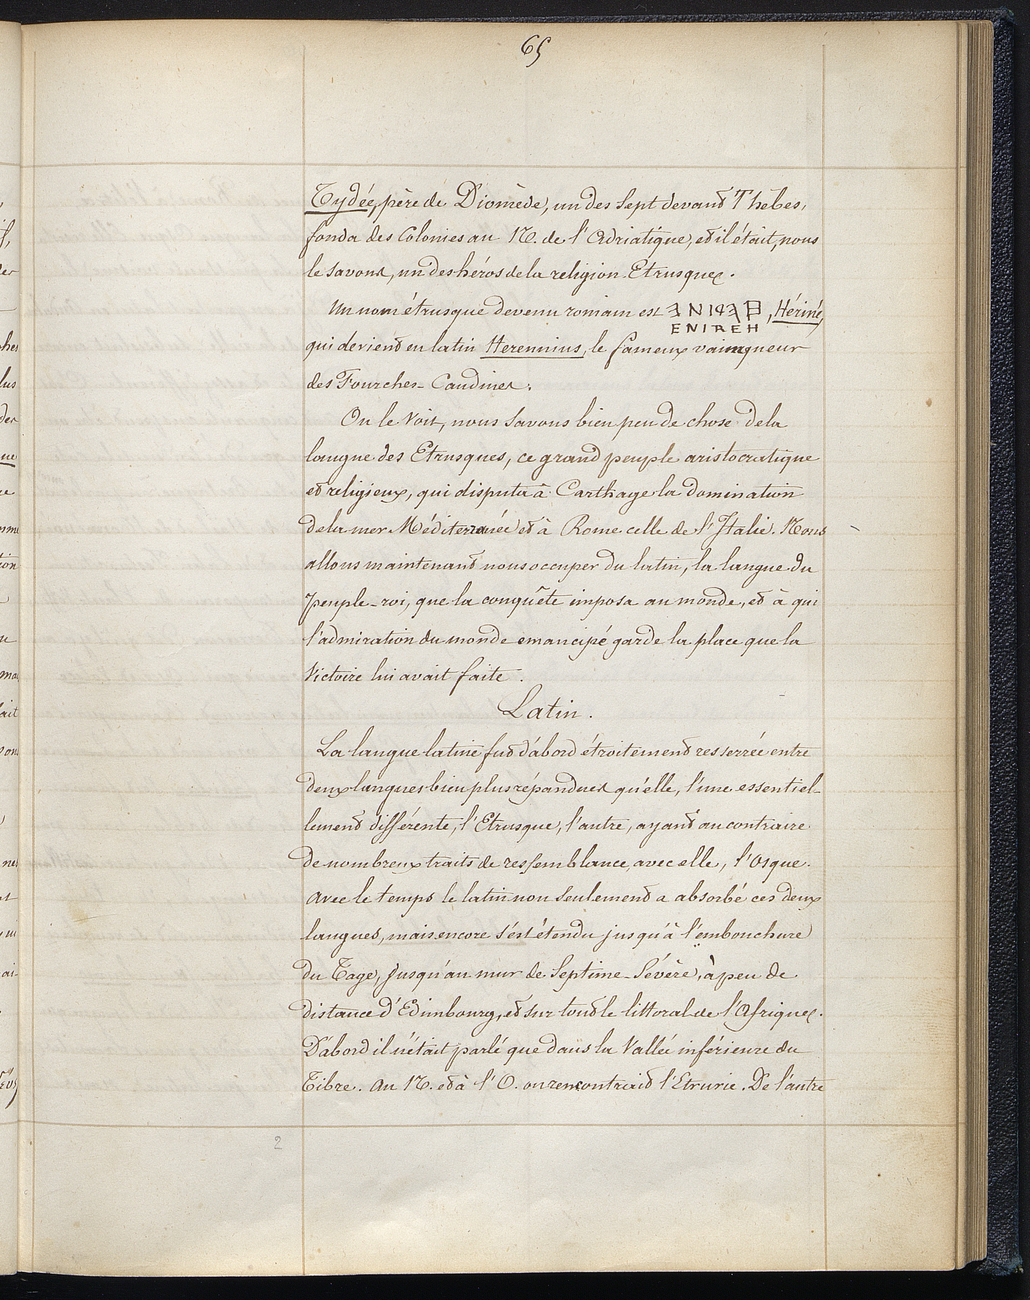 65
Tydée, père de Diomède, un des Sept devant Thèbes,
fonda des Colonies au N. de l'Adriatique, et il était, nous
le savons, un des héros de la religion Etrusque.
Un nom étrusque devenu romain est ENIREH, Hériné,
ENIREH
qui devient en latin Herennius, le fameux vainqueur
des Fourches-Caudines.
On le voit, nous savons bien peu de chose de la
langue des Etrusques, ce grand peuple aristocratique
et religieux, qui disputa à Carthage la domination
de la mer Méditerranée et à Rome celle de l'Italie. Nous
allons maintenant nous occuper du latin, la langue du
peuple-roi, que la conquête imposa au monde, et à qui
l'admiration du monde emancipé garde la place que la
Victoire lui avait faite.
Latin.
La langue latine fut d'abord étroitement resserrée entre
deux langues bien plus répandues qu'elle, l'une essentiel-
lement différente, l'Etrusque, l'autre, ayant au contraire
de nombreux traits de ressemblance avec elle, l'Osque.
Avec le temps le latin non seulement a absorbé ces deux
langues, mais encore s'est étendu jusqu'à l'embouchure
du Tage, jusqu'au mur de Septime-Sévère, à peu de
distance d'Edimbourg, et sur tout le littoral de l'Afrique.
D'abord il n'était parlé que dans la Vallée inférieure du
Tibre. Au N. et à l'O. on rencontrait l'Etrurie. De l'autre
2